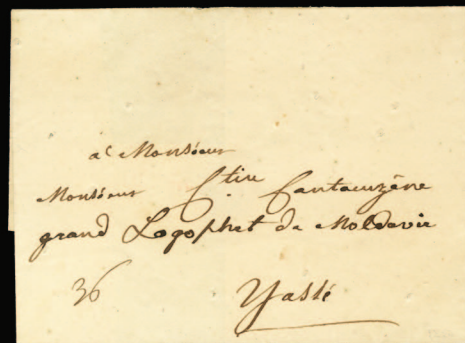 a Monsieur
Monsieur C.tin Cantacuzéne
grand Logophet de Moldavie
36
Yassé